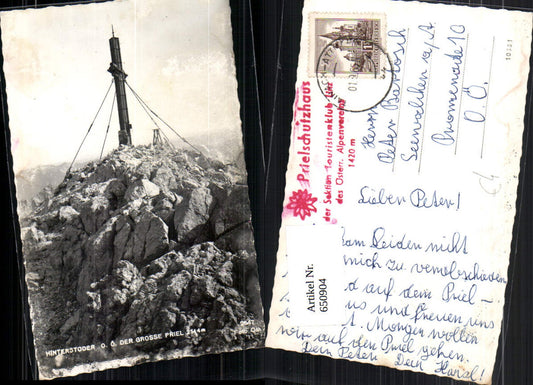 HINTERSTODER O. Ö. DER GROSSE PRIEL 2514 m
Prielschutzhaus
der Sektion Touristenklub Linz
des Österr. Alpenvereins
1420 m
Herrn
Peter
Seewalchen a/A.
Promenade 10
O.Ö.
10301
Artikel Nr.
650904
Lieber Peter!
Kam leider nicht
mich zu verabschieden
d auf dem Priel-
us und freuen uns
t. Morgen wollen
wir auf den Priel gehen.
Dein Peter Dein Harald!